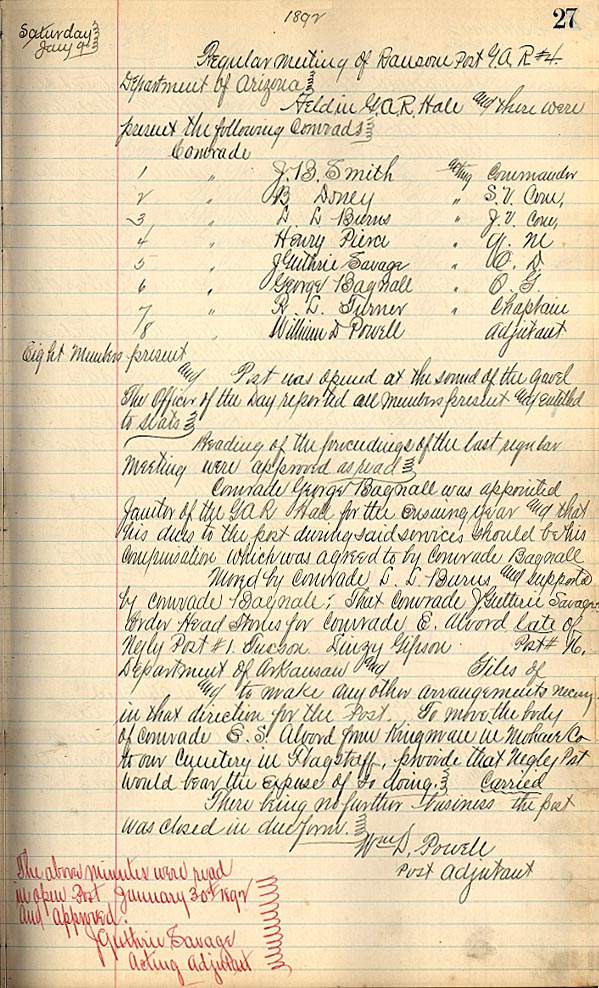 1892
27
Saturday
Jany 9th
Regular meeting of Ransom Post G.A.R #4.
Department of Arizona
Held in G.A.R. Hale and there were
present the following Comrads
Comrade
1 " J. B. Smith acting Commander
2 " B Doney " S.V. Com,
3 " L. L. Burns " J.V. Com,
4 " Henry Pierce " Q. M
5 " J Guthrie Savage " O. D
6 " George Bagnall " O. G.
7 " R. L. Turner " Chaplain
8 " William D Powell Adjutant
Eight Members present
and Post was opened at the sound of the Gavel
The Officer of the Day reported all members present and entitled
to seats
Reading of the proceedings of the last regular
meeting were approved as read
Comrade George Bagnall was appointed
Janitor of the GAR Hall for the ensuing year and that
his dues to the post during said services should be his
compensation which was agreed to by Comrade Bagnall
Moved by Comrade L. L. Burns and supported
by Comrade Bagnall; That Comrade J Guthrie Savage
order Head Stones for Comrade E. Alvord late of
Negly Post #1. Tucson Linzy Gipson Post #
Department of Arkansaw and Giles of
and to make any other arrangements necery
in that direction for the Post. To move the body
of Comrade E. S. Alvord from Kingman in Mohave Co
to our Cemetery in Flagstaff, provide that Negley Post
would bear the expense of so doing. Carried
There being no further business the post
was closed in due form.
Wm D. Powell
Post Adjutant
The above minutes were read
in open Post January 30th 1892
and approved.
J Guthrie Savage
Acting Adjutant